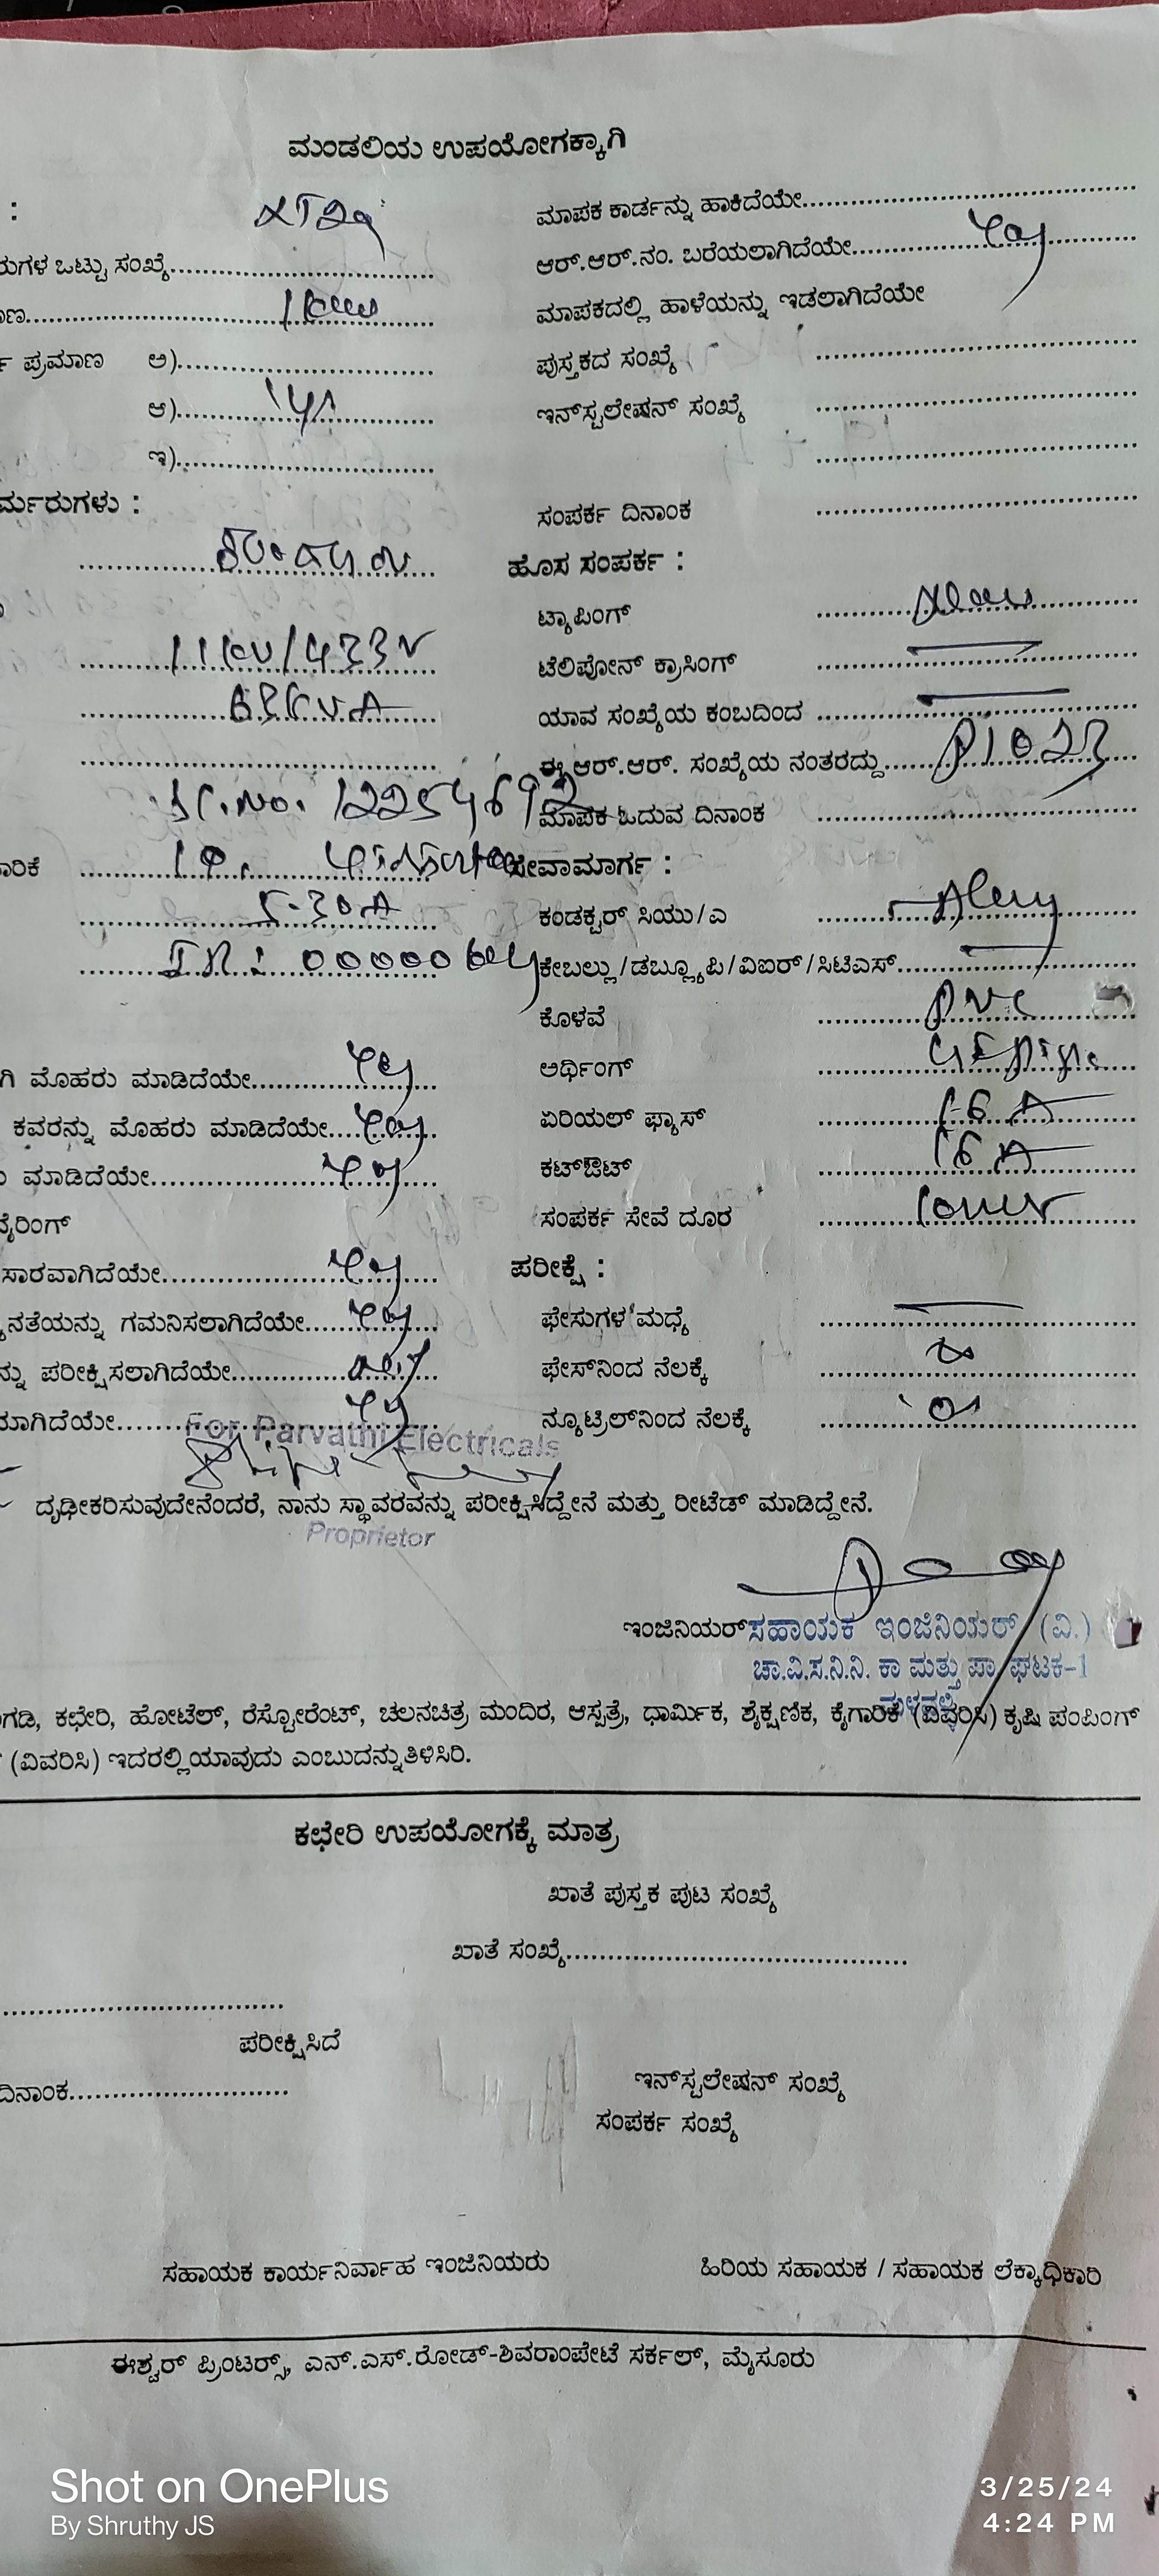 ಮಂಡಲಿಯ ಉಪಯೋಗಕ್ಕಾಗಿ
:
ರುಗಳ ಒಟ್ಟು ಸಂಖ್ಯೆ
ಪ್ರಮಾಣ ಅ)
ಆ)
ಇ)
ರ್ಮರುಗಳು :
11kv/433v
63KVA
Sr.No. 12254692
ಾರಿಕೆ
5-30A
IR: 0000064
ಗಿ ಮೊಹರು ಮಾಡಿದೆಯೇ yes
ಕವರನ್ನು ಮೊಹರು ಮಾಡಿದೆಯೇ yes
ು ಮಾಡಿದೆಯೇ yes
ವೈರಿಂಗ್
ಸಾರವಾಗಿದೆಯೇ yes
ನತೆಯನ್ನು ಗಮನಿಸಲಾಗಿದೆಯೇ yes
ನ್ನು ಪರೀಕ್ಷಿಸಲಾಗಿದೆಯೇ
ಮಾಗಿದೆಯೇ yes
ಮಾಪಕ ಕಾರ್ಡನ್ನು ಹಾಕಿದೆಯೇ
ಆರ್.ಆರ್.ನಂ. ಬರೆಯಲಾಗಿದೆಯೇ yes
ಮಾಪಕದಲ್ಲಿ ಹಾಳೆಯನ್ನು ಇಡಲಾಗಿದೆಯೇ
ಪುಸ್ತಕದ ಸಂಖ್ಯೆ
ಇನ್‌ಸ್ಟಲೇಷನ್ ಸಂಖ್ಯೆ
ಸಂಪರ್ಕ ದಿನಾಂಕ
ಹೊಸ ಸಂಪರ್ಕ :
ಟ್ಯಾಪಿಂಗ್
ಟೆಲಿಪೋನ್ ಕ್ರಾಸಿಂಗ್
ಯಾವ ಸಂಖ್ಯೆಯ ಕಂಬದಿಂದ
ಈ ಆರ್.ಆರ್. ಸಂಖ್ಯೆಯ ನಂತರದ್ದು P1023
ಮಾಪಕ ಓದುವ ದಿನಾಂಕ
ಸೇವಾಮಾರ್ಗ :
ಕಂಡಕ್ಟರ್ ಸಿಯು/ಎ
ಕೇಬಲ್ಲು/ಡಬ್ಲ್ಯೂಪಿ/ವಿಐರ್/ಸಿಟಿಎಸ್
ಕೊಳವೆ PVC
ಅರ್ಥಿಂಗ್ GI Pipe
ಏರಿಯಲ್ ಫ್ಯಾಸ್ 16 A
ಕಟ್‌ಔಟ್ 16 A
ಸಂಪರ್ಕ ಸೇವೆ ದೂರ
ಪರೀಕ್ಷೆ :
ಫೇಸುಗಳ ಮಧ್ಯೆ
ಫೇಸ್‌ನಿಂದ ನೆಲಕ್ಕೆ
ನ್ಯೂಟ್ರಿಲ್‌ನಿಂದ ನೆಲಕ್ಕೆ
For Parvathi Electricals
ದೃಢೀಕರಿಸುವುದೇನೆಂದರೆ, ನಾನು ಸ್ಥಾವರವನ್ನು ಪರೀಕ್ಷಿಸಿದ್ದೇನೆ ಮತ್ತು ರೀಟೆಡ್ ಮಾಡಿದ್ದೇನೆ.
Proprietor
ಇಂಜಿನಿಯರ್ ಸಹಾಯಕ ಇಂಜಿನಿಯರ್ (ವಿ.)
ಚಾ.ವಿ.ಸ.ನಿ.ನಿ. ಕಾ ಮತ್ತು ಪಾ ಘಟಕ-1
ಮಳವಳ್ಳಿ
ಗಡಿ, ಕಛೇರಿ, ಹೋಟೆಲ್, ರೆಸ್ಟೋರೆಂಟ್, ಚಲನಚಿತ್ರ ಮಂದಿರ, ಆಸ್ಪತ್ರೆ, ಧಾರ್ಮಿಕ, ಶೈಕ್ಷಣಿಕ, ಕೈಗಾರಿಕೆ (ವಿವರಿಸಿ) ಕೃಷಿ ಪಂಪಿಂಗ್
(ವಿವರಿಸಿ) ಇದರಲ್ಲಿಯಾವುದು ಎಂಬುದನ್ನುತಿಳಿಸಿರಿ.
ಕಛೇರಿ ಉಪಯೋಗಕ್ಕೆ ಮಾತ್ರ
ಖಾತೆ ಪುಸ್ತಕ ಪುಟ ಸಂಖ್ಯೆ
ಖಾತೆ ಸಂಖ್ಯೆ
ಪರೀಕ್ಷಿಸಿದೆ
ದಿನಾಂಕ
ಇನ್‌ಸ್ಟಲೇಷನ್ ಸಂಖ್ಯೆ
ಸಂಪರ್ಕ ಸಂಖ್ಯೆ
ಸಹಾಯಕ ಕಾರ್ಯನಿರ್ವಾಹ ಇಂಜಿನಿಯರು
ಹಿರಿಯ ಸಹಾಯಕ / ಸಹಾಯಕ ಲೆಕ್ಕಾಧಿಕಾರಿ
ಈಶ್ವರ್ ಪ್ರಿಂಟರ್ಸ್, ಎನ್.ಎಸ್.ರೋಡ್-ಶಿವರಾಂಪೇಟೆ ಸರ್ಕಲ್, ಮೈಸೂರು
Shot on OnePlus
By Shruthy JS
3/25/24
4:24 PM